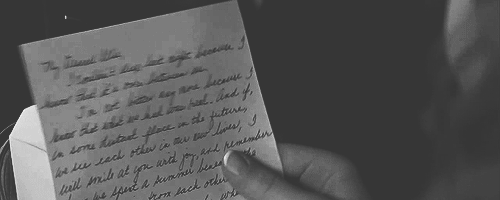 My Dearest Allie,
I couldn't sleep last night because I
know that it's over between us.
I'm not bitter any more because I
know that what we had was real. And if,
in some distant place in the future,
we see each other in our new lives, I
will smile at you with joy and remember
we spent a summer beneath the
from each other